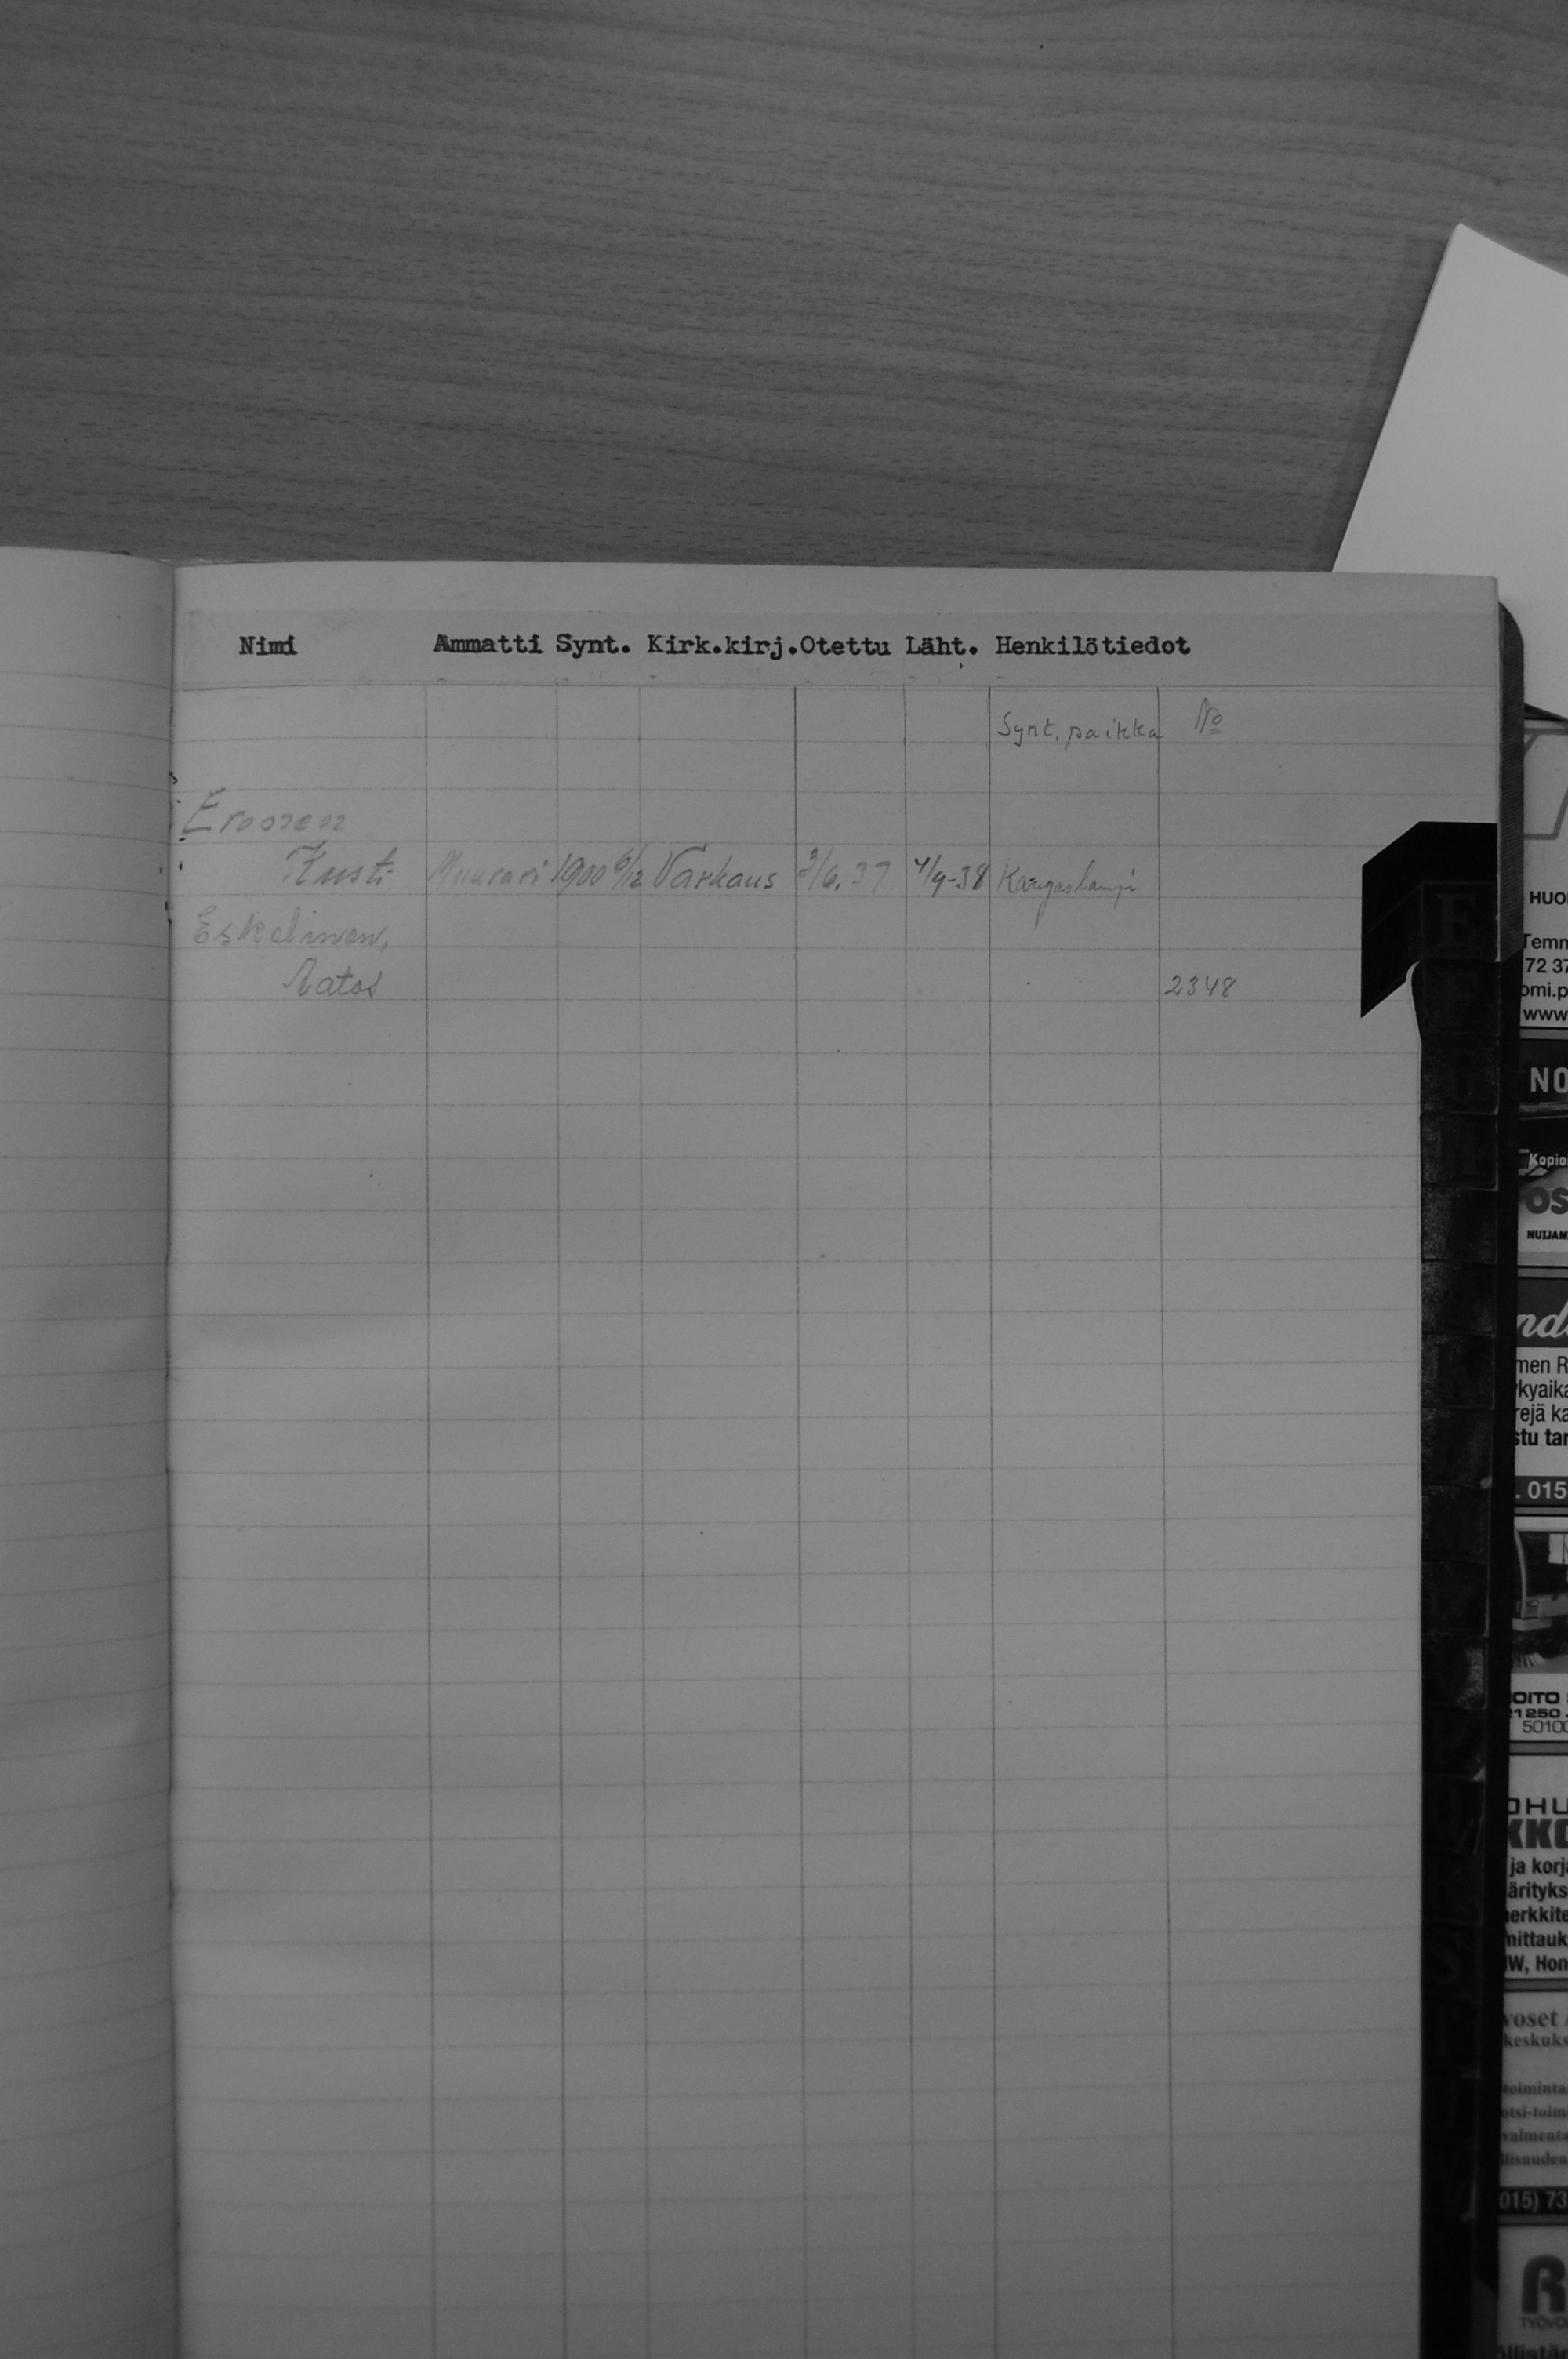 Nimi Ammatti Synt. Kirk.kirj. Otettu Läht. Henkilötiedot
Synt. paikka No
Eronen
Kusti Muurari 1900 6/12 Varkaus 3/6. 37 4/9-38 Kangaslampi
Eskelinen,
Aatos 2348
E
HUO
Temn
72 37
omi.p
www
NO
Kopio
OS
NUIJAM
nd
men R
kyaika
rejä ka
stu tar
. 015
OITO
21250
50100
OHU
KKO
ja korj
ärityks
erkkite
mittauk
W, Hon
voset
keskuks
toiminta
otsi-toim
valmenta
llisuuden
015) 73
R
TYÖVO